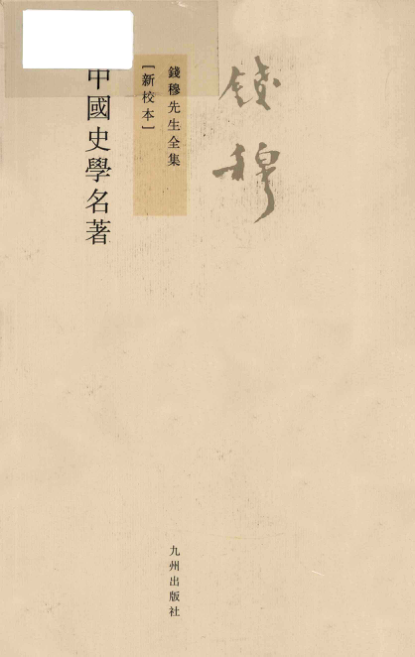 錢穆
錢穆先生全集
[新校本]
中國史學名著
九州出版社